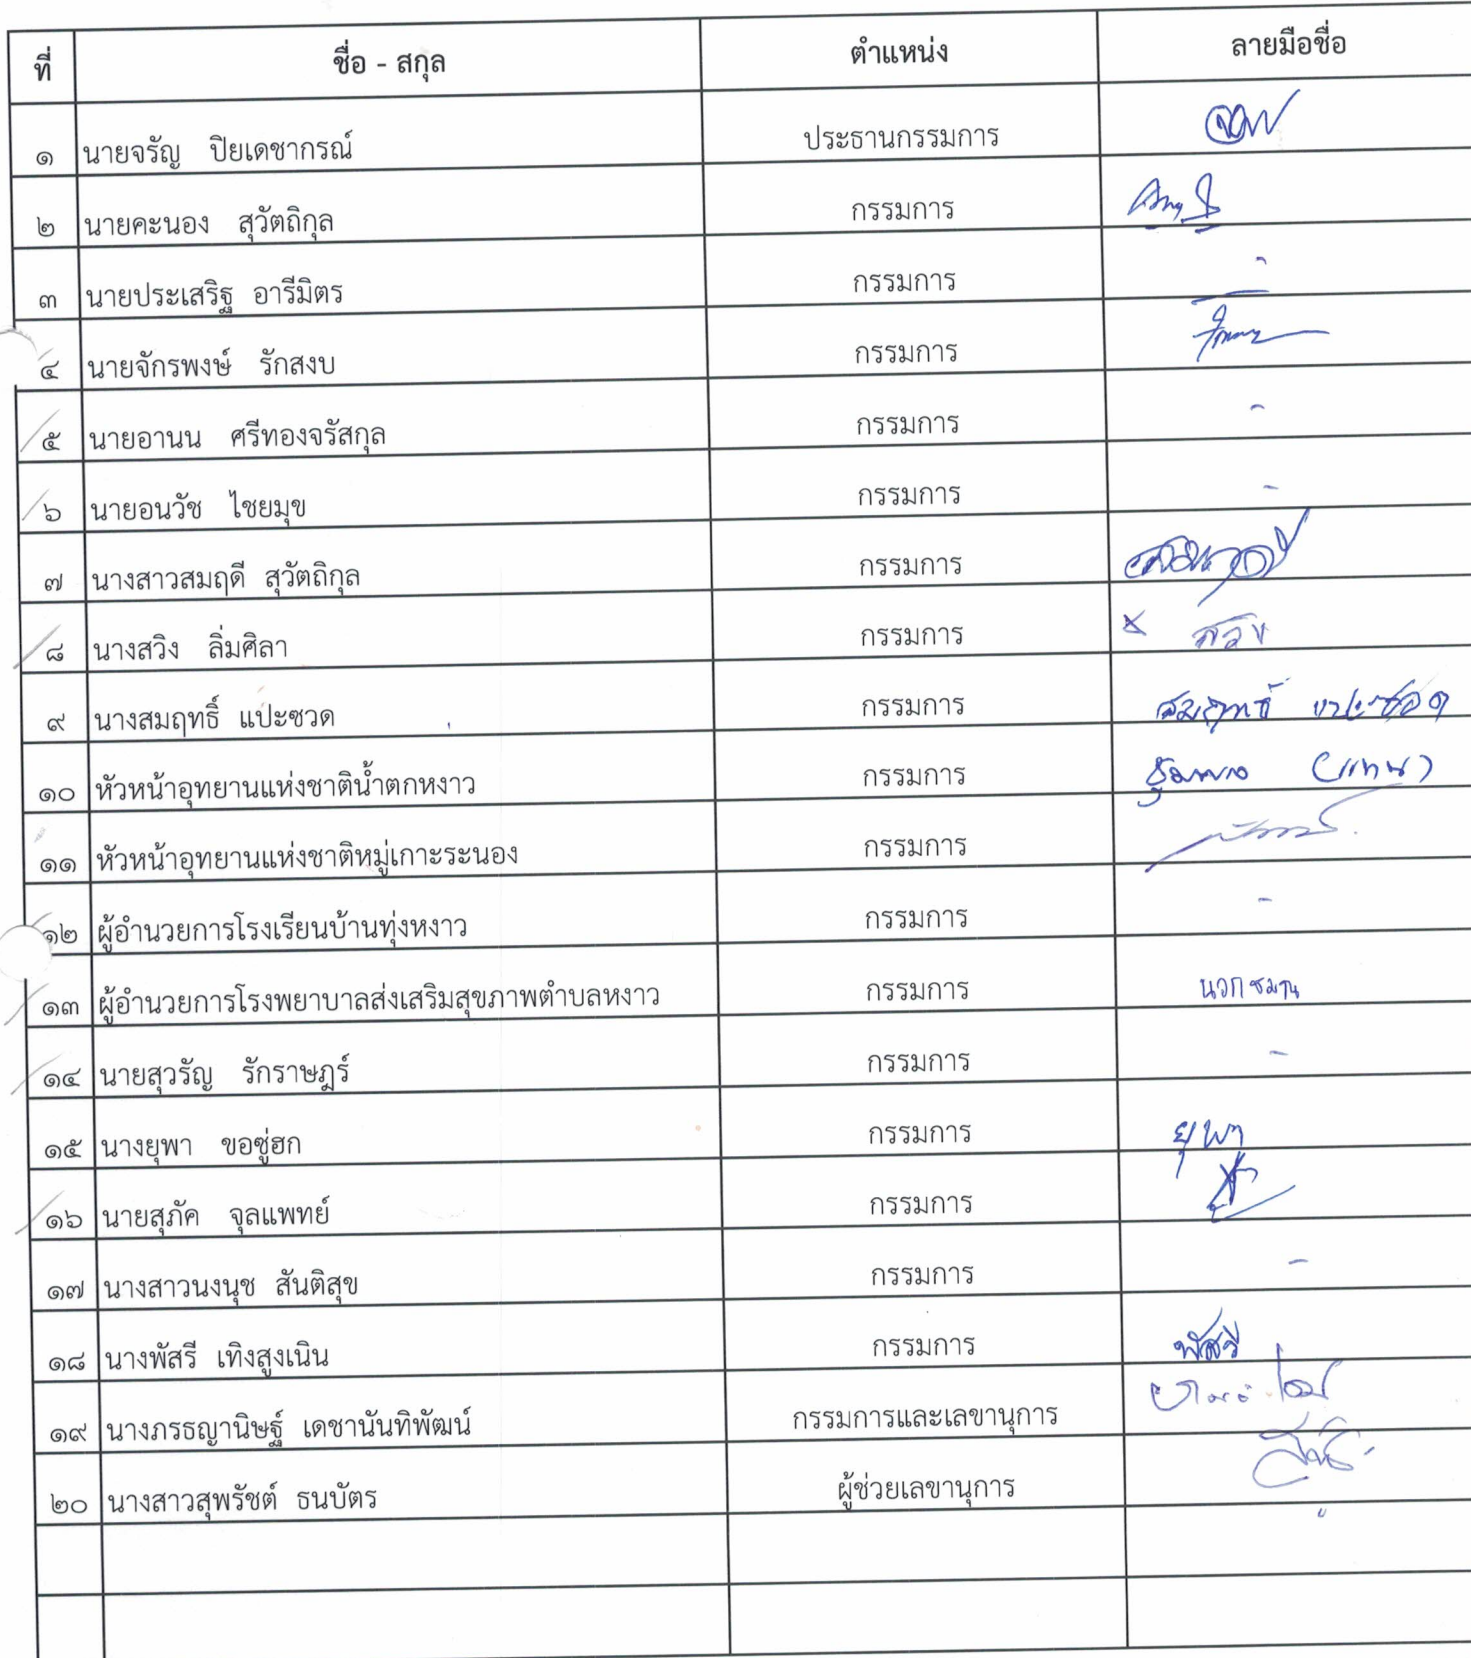 ที่ ชื่อ - สกุล ตำแหน่ง ลายมือชื่อ
๑ นายจรัญ ปิยเดชากรณ์ ประธานกรรมการ
๒ นายคะนอง สุวัตถิกุล กรรมการ
๓ นายประเสริฐ อารีมิตร กรรมการ -
๔ นายจักรพงษ์ รักสงบ กรรมการ
๕ นายอานน ศรีทองจรัสกุล กรรมการ -
๖ นายอนวัช ไชยมุข กรรมการ -
๗ นางสาวสมฤดี สุวัตถิกุล กรรมการ
๘ นางสวิง ลิ่มศิลา กรรมการ x สวิง
๙ นางสมฤทธิ์ แป๊ะชวด กรรมการ สมฤทธิ์ แป๊ะชวด
๑๐ หัวหน้าอุทยานแห่งชาติน้ำตกหงาว กรรมการ (แทน)
๑๑ หัวหน้าอุทยานแห่งชาติหมู่เกาะระนอง กรรมการ
๑๒ ผู้อำนวยการโรงเรียนบ้านทุ่งหงาว กรรมการ -
๑๓ ผู้อำนวยการโรงพยาบาลส่งเสริมสุขภาพตำบลหงาว กรรมการ
๑๔ นายสุวรัญ รักราษฎร์ กรรมการ -
๑๕ นางยุพา ขอซู่ฮก กรรมการ ยุพา
๑๖ นายสุภัค จุลแพทย์ กรรมการ
๑๗ นางสาวนงนุช สันติสุข กรรมการ -
๑๘ นางพัสรี เทิงสูงเนิน กรรมการ พัสรี
๑๙ นางภรธญานิษฐ์ เดชานันทิพัฒน์ กรรมการและเลขานุการ
๒๐ นางสาวสุพรัชต์ ธนบัตร ผู้ช่วยเลขานุการ